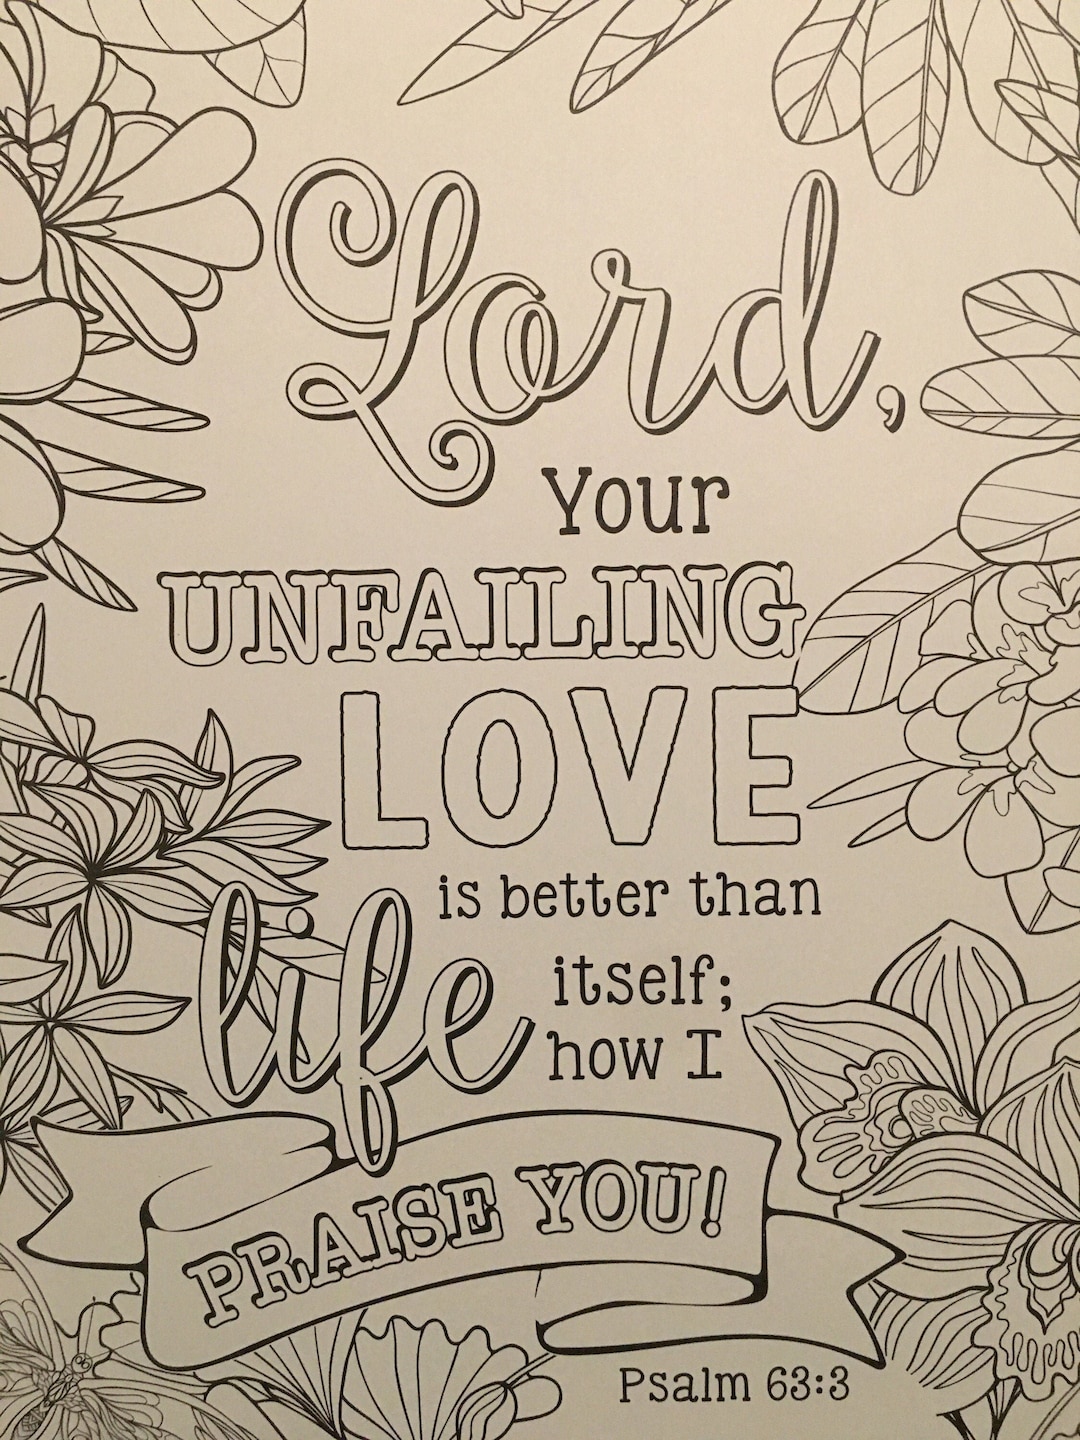 Lord,
Your
UNFAILING
LOVE
is better than
life itself;
how I
PRAISE YOU!
Psalm 63:3